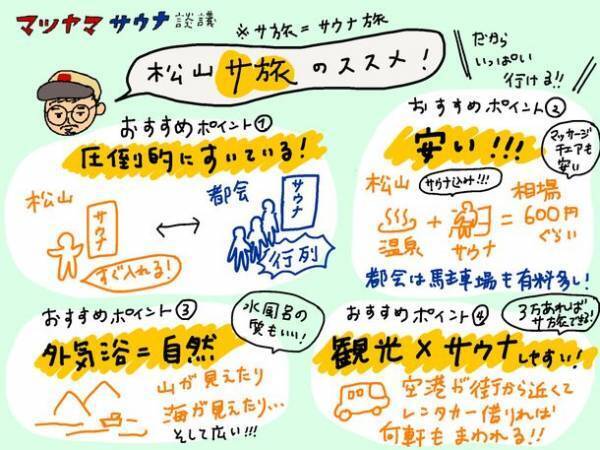 マツヤマ サウナ 談議
※サ旅=サウナ旅
松山 サ旅 のススメ!
だから
いっぱい
行ける!!
おすすめポイント①
圧倒的にすいている!
松山
サウナ
すぐ入れる!
都会
サウナ
行列
おすすめポイント②
安い!!!
マッサージ
チェアも
安い
松山
サウナ込み!!!
温泉
+
サウナ
=
相場
600円
ぐらい
都会は駐車場も有料多し!
おすすめポイント③
水風呂の
質もいい!
外気浴=自然
山が見えたり
海が見えたり…
そして広い!!!
おすすめポイント④
3万あれば
サ旅できる!
観光×サウナしやすい!
空港が街から近くて
レンタカー借りれば
何軒もまわれる!!